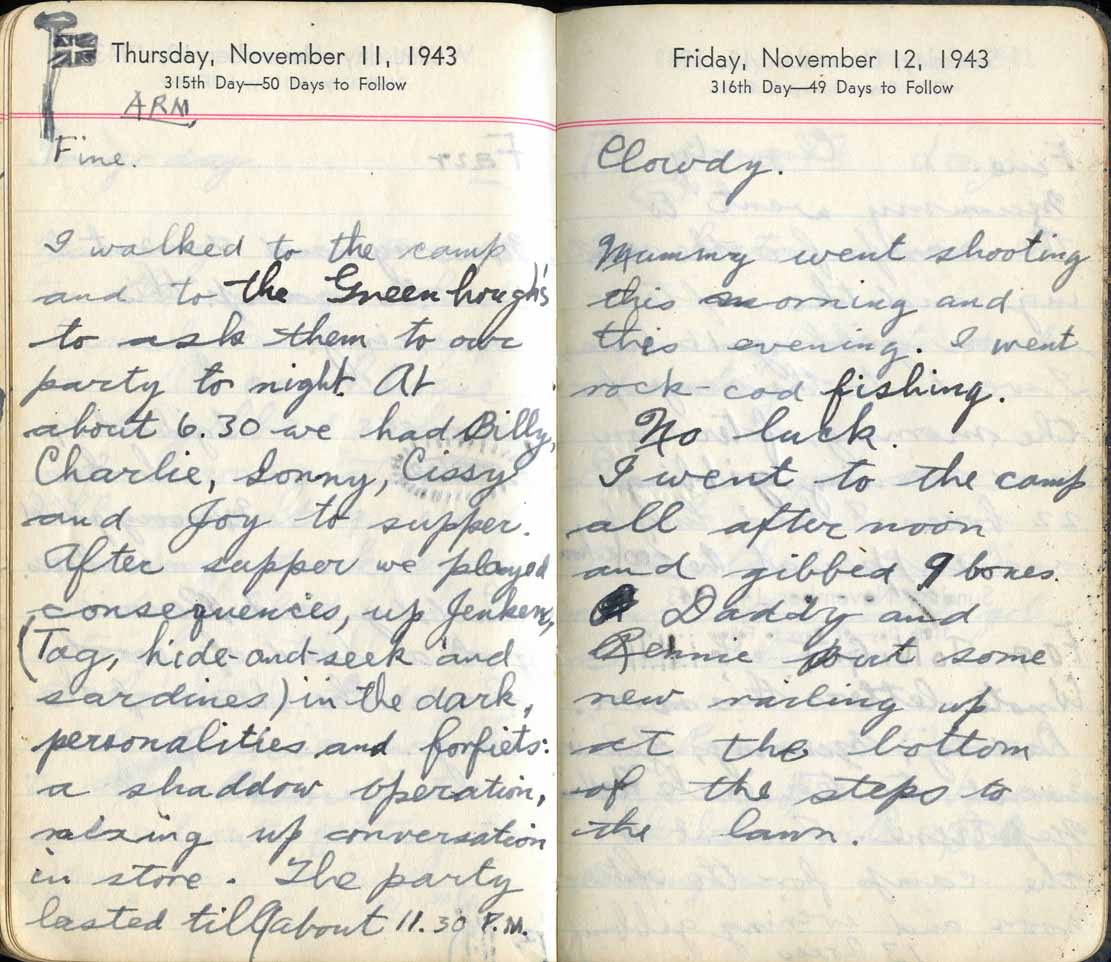 Thursday, November 11, 1943
315th Day—50 Days to Follow
ARM
Fine.
I walked to the camp
and to the Greenhough's
to ask them to our
party to night. At
about 6.30 we had Billy,
Charlie, Sonny, Cissy
and Joy to supper.
After supper we played
consequences, up Jenkens,
(Tag, hide-and-seek and
sardines) in the dark,
personalities and forfiets:
a shaddow operation,
mixing up conversation
in store. The party
lasted till about 11.30 P.M.
Friday, November 12, 1943
316th Day—49 Days to Follow
Clowdy.
Mummy went shooting
this morning and
this evening. I went
rock-cod fishing.
No luck.
I went to the camp
all after noon
and gibbed 9 boxes.
Daddy and
Rennie put some
new railing up
at the bottom
of the steps to
the lawn.